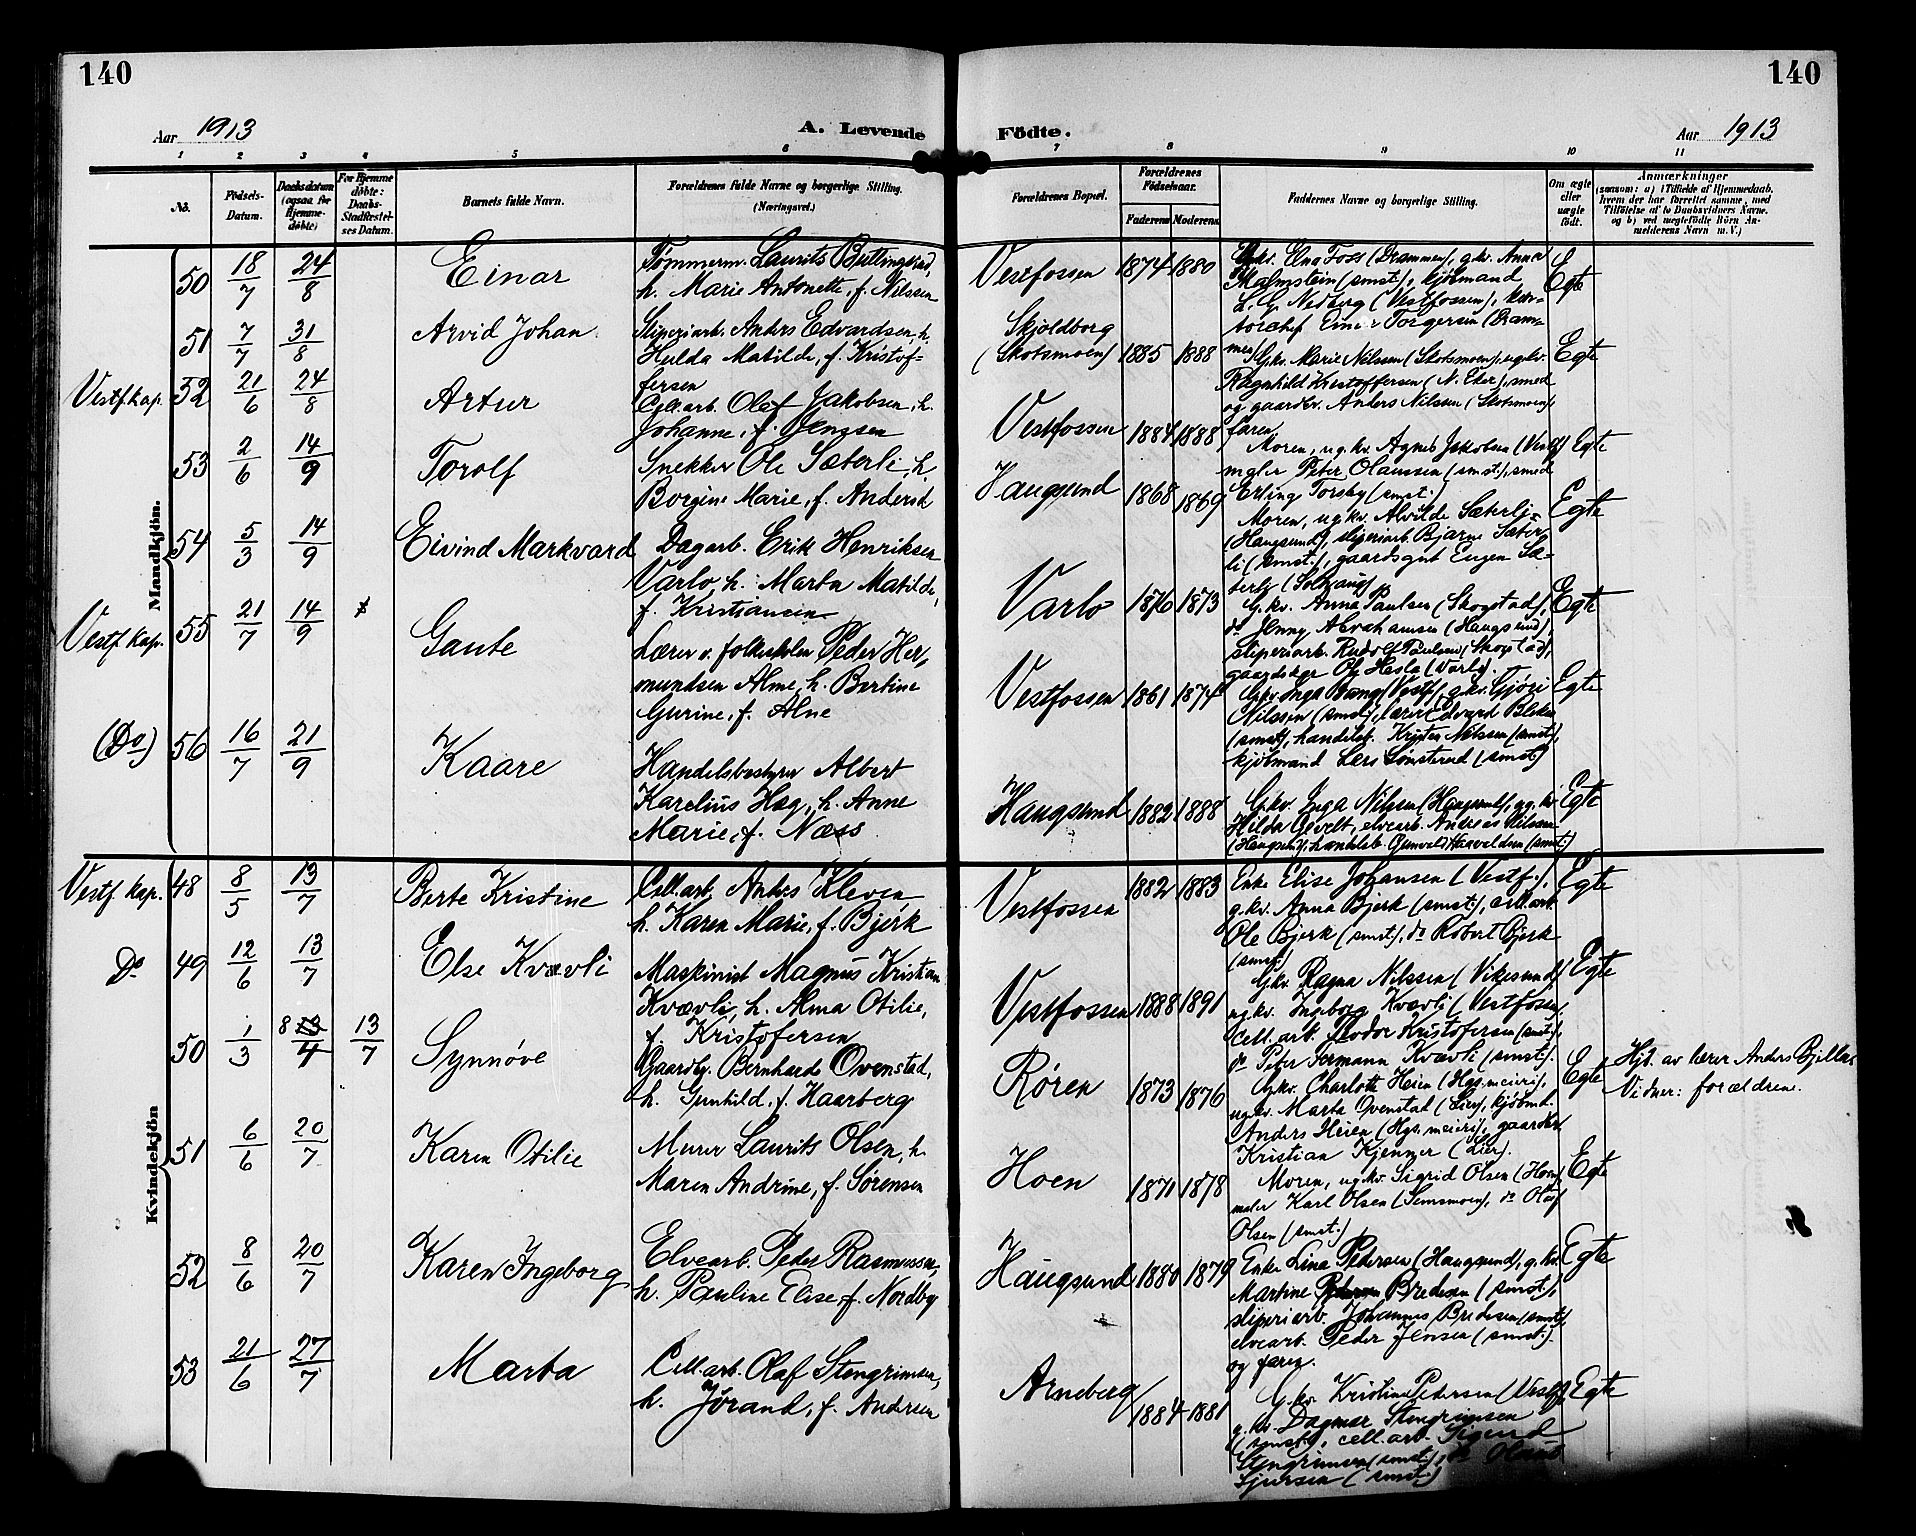 140
140
Aar 1913
A. Levende
Födte.
Aar 1913
1 2 3 4 5 6
7 8 9 10 11
No.
Födsels-
Datum.
Daabsdatum
(ogsaa for
Hjemme-
döbte)
For Hjemme
döbte:
Daabs-
Stadfæstel-
ses Datum.
Barnets fulde Navn.
Forældrenes fulde Navne og borgerlige Stilling.
(Næringsvei.)
Forældrenes Bopæl.
Forældrenes
Födselsaar.
Faderens
Moderens
Faddernes Navne og borgerlige Stilling.
Om ægte
eller
uægte
født.
Anmærkninger
(saasom: a) i Tilfælde af Hjemmedaab,
hvem der har forrettet samme, med
Tilföielse af to Daabsvidners Navne.
b) ved uegtefödte Börn An-
melderens Navn m. V.)
Mandkjön.
50 18/7 24/8 Einar
Tømmerm. Laurits
h. Marie Antonette, f. Nilssen
Vestfossen 1874 1880
Gkv. Elna Foss (Drammen), gkv. Anna
Malmstein (smst.), kjøbmand
L. G. Nedberg (Vestfossen), kon-
torchef Einar Torgersen (Dram-
men)
Egte
51 7/7 31/8 Arvid Johan.
Sliperiarb. Anders Edvardsen, h.
Hulda Matilde, f. Kristof-
fersen
Skjoldborg
(Skotsmoen) 1885 1888
Gkv. Marie Nilssen (Skotsmoen), ugkv.
Ragnhild Kristoffersen (N. Eker), smed
og gaardbr. Anders Nilssen (Skotsmoen),
faren.
Egte
Vestf. kap. 52 21/6 24/8 Artur
Cell.arb. Olaf Jakobsen, h.
Johanne, f. Jenssen
Vestfossen 1884 1888
Moren, ugkv. Agnes Jakobsen (Vestf.)
maler Peter Olaussen (smst.), smed
Erling Torsby (smst.)
Egte
53 2/6 14/9 Torolf
Snekker Ole Sæterli, h.
Borgine Marie, f. Anders
Haugsund 1868 1869
Moren, ugkv. Alvilde Sæterli
(Haugsund), sliperiarb. Bjarne Sæter-
li (smst.), gaardsgut Eugen Sæ-
terli (Solhaug)
Egte
54 5/3 14/9 Eivind Markvard
Dagarb. Erik Henriksen
Varlo, h. Marta Matilde,
f. Kristiansen
Varlo 1876 1873
Gkv. Anna Paulsen (Skogstad),
do Jenny Abrahamsen (Haugsund),
sliperiarb. Rudolf Paulsen (Skogstad),
Ole Hesla (Varlo).
Egte
Vestf. kap. 55 21/7 14/9 Gaute
Lærer v. folkeskolen Peder Her-
mundsen Alme, h. Bertine
Gurine, f. Alne
Vestfossen 1861 1874
Gkv. Inga Bang (Vestf.), gkv.
Nilssen (smst.), lærer Edvard
(smst.), handelsb. Nilssen (smst.),
kjøbmand Lars Sønsterud (smst.)
Egte
(Do) 56 16/7 21/9 Kaare
Handelsbestyrer Albert
Karelius Hæg, h. Anne
Marie, f. Næss
Haugsund 1882 1888
Gkv. Inga Nilsen (Haugsund), ug. kv.
Hilda Gevelt, elvearb. Andreas Nilssen
(Haugsund), handelsb. Gunvald Haavaldsen (smst.)
Egte
Kvindekjön
Vestf. kap. 48 8/5 13/7 Berte Kristine
Cell.arb. Anders Kleven
h. Karen Marie, f. Bjerk
Vestfossen 1882 1883
Enke Elise Johansen (Vestf.),
gkv. Anna Bjerk (smst.), cell.arb.
Ole Bjerk (smst.), do Robert Bjerk
(smst.)
Egte
Do 49 12/6 13/7 Else Kvævli
Maskinist Magnus Kristian
Kvævli, h. Alma Otilie,
f. Kristofersen
Vestfossen 1888 1891
Gkv. Ragna Nilssen (Vikesund)
ugkv. Ingeborg Kvævli (Vestfossen)
cell.arb. Teodor Kristofersen (smst.),
do Peter Hermann Kvævli (smst.).
Egte
50 1/3 8 13/4 13/7 Synnøve
Gaardbr. Bernhards Ovenstad,
h. Gunhild, f. Haarberg
Røren 1873 1876
Gkv. Charlotte Heien (Hgs. meieri),
ugkv. Marta Ovenstad (Lier), kjøbmd.
Anders Heien (Hgs. meieri), gaardbr.
Kristian Kjenner (Lier).
Egte
Hjd. av lærer Anders
Vidner: forældrene.
51 6/6 20/7 Karen Otilie
Murer Laurits Olsen, h.
Maren Andrine, f. Sørensen
Hoen 1871 1878
Moren, ugkv. Sigrid Olsen (Hoen)
maler Karl Olsen (Semsmoen), do Olaf
Olsen (smst.)
Egte
52 8/6 20/7 Karen Ingeborg
Elvearb. Peder Rasmussen,
h. Pauline Elise, f. Nordby
Haugsund 1880 1879
Enke Lina Pedersen (Haugsund), g.kv.
Martine Bredesen (smst.),
sliperiarb. Johannes Bredesen (smst.),
elvearb. Peder Jensen (smst.)
og faren.
Egte
53 21/6 27/7 Marta
Cell.arb. Olaf Stengrimsen,
h. Jørand, f. Andersen
Arneberg 1884 1881
G.kv. Kristine Pedersen (Vestf.)
g.kv. Dagmar Stengrimsen
(smst.), cell.arb. Sigurd
Stengrimsen (smst.), do
Sjursen (smst.)
Egte